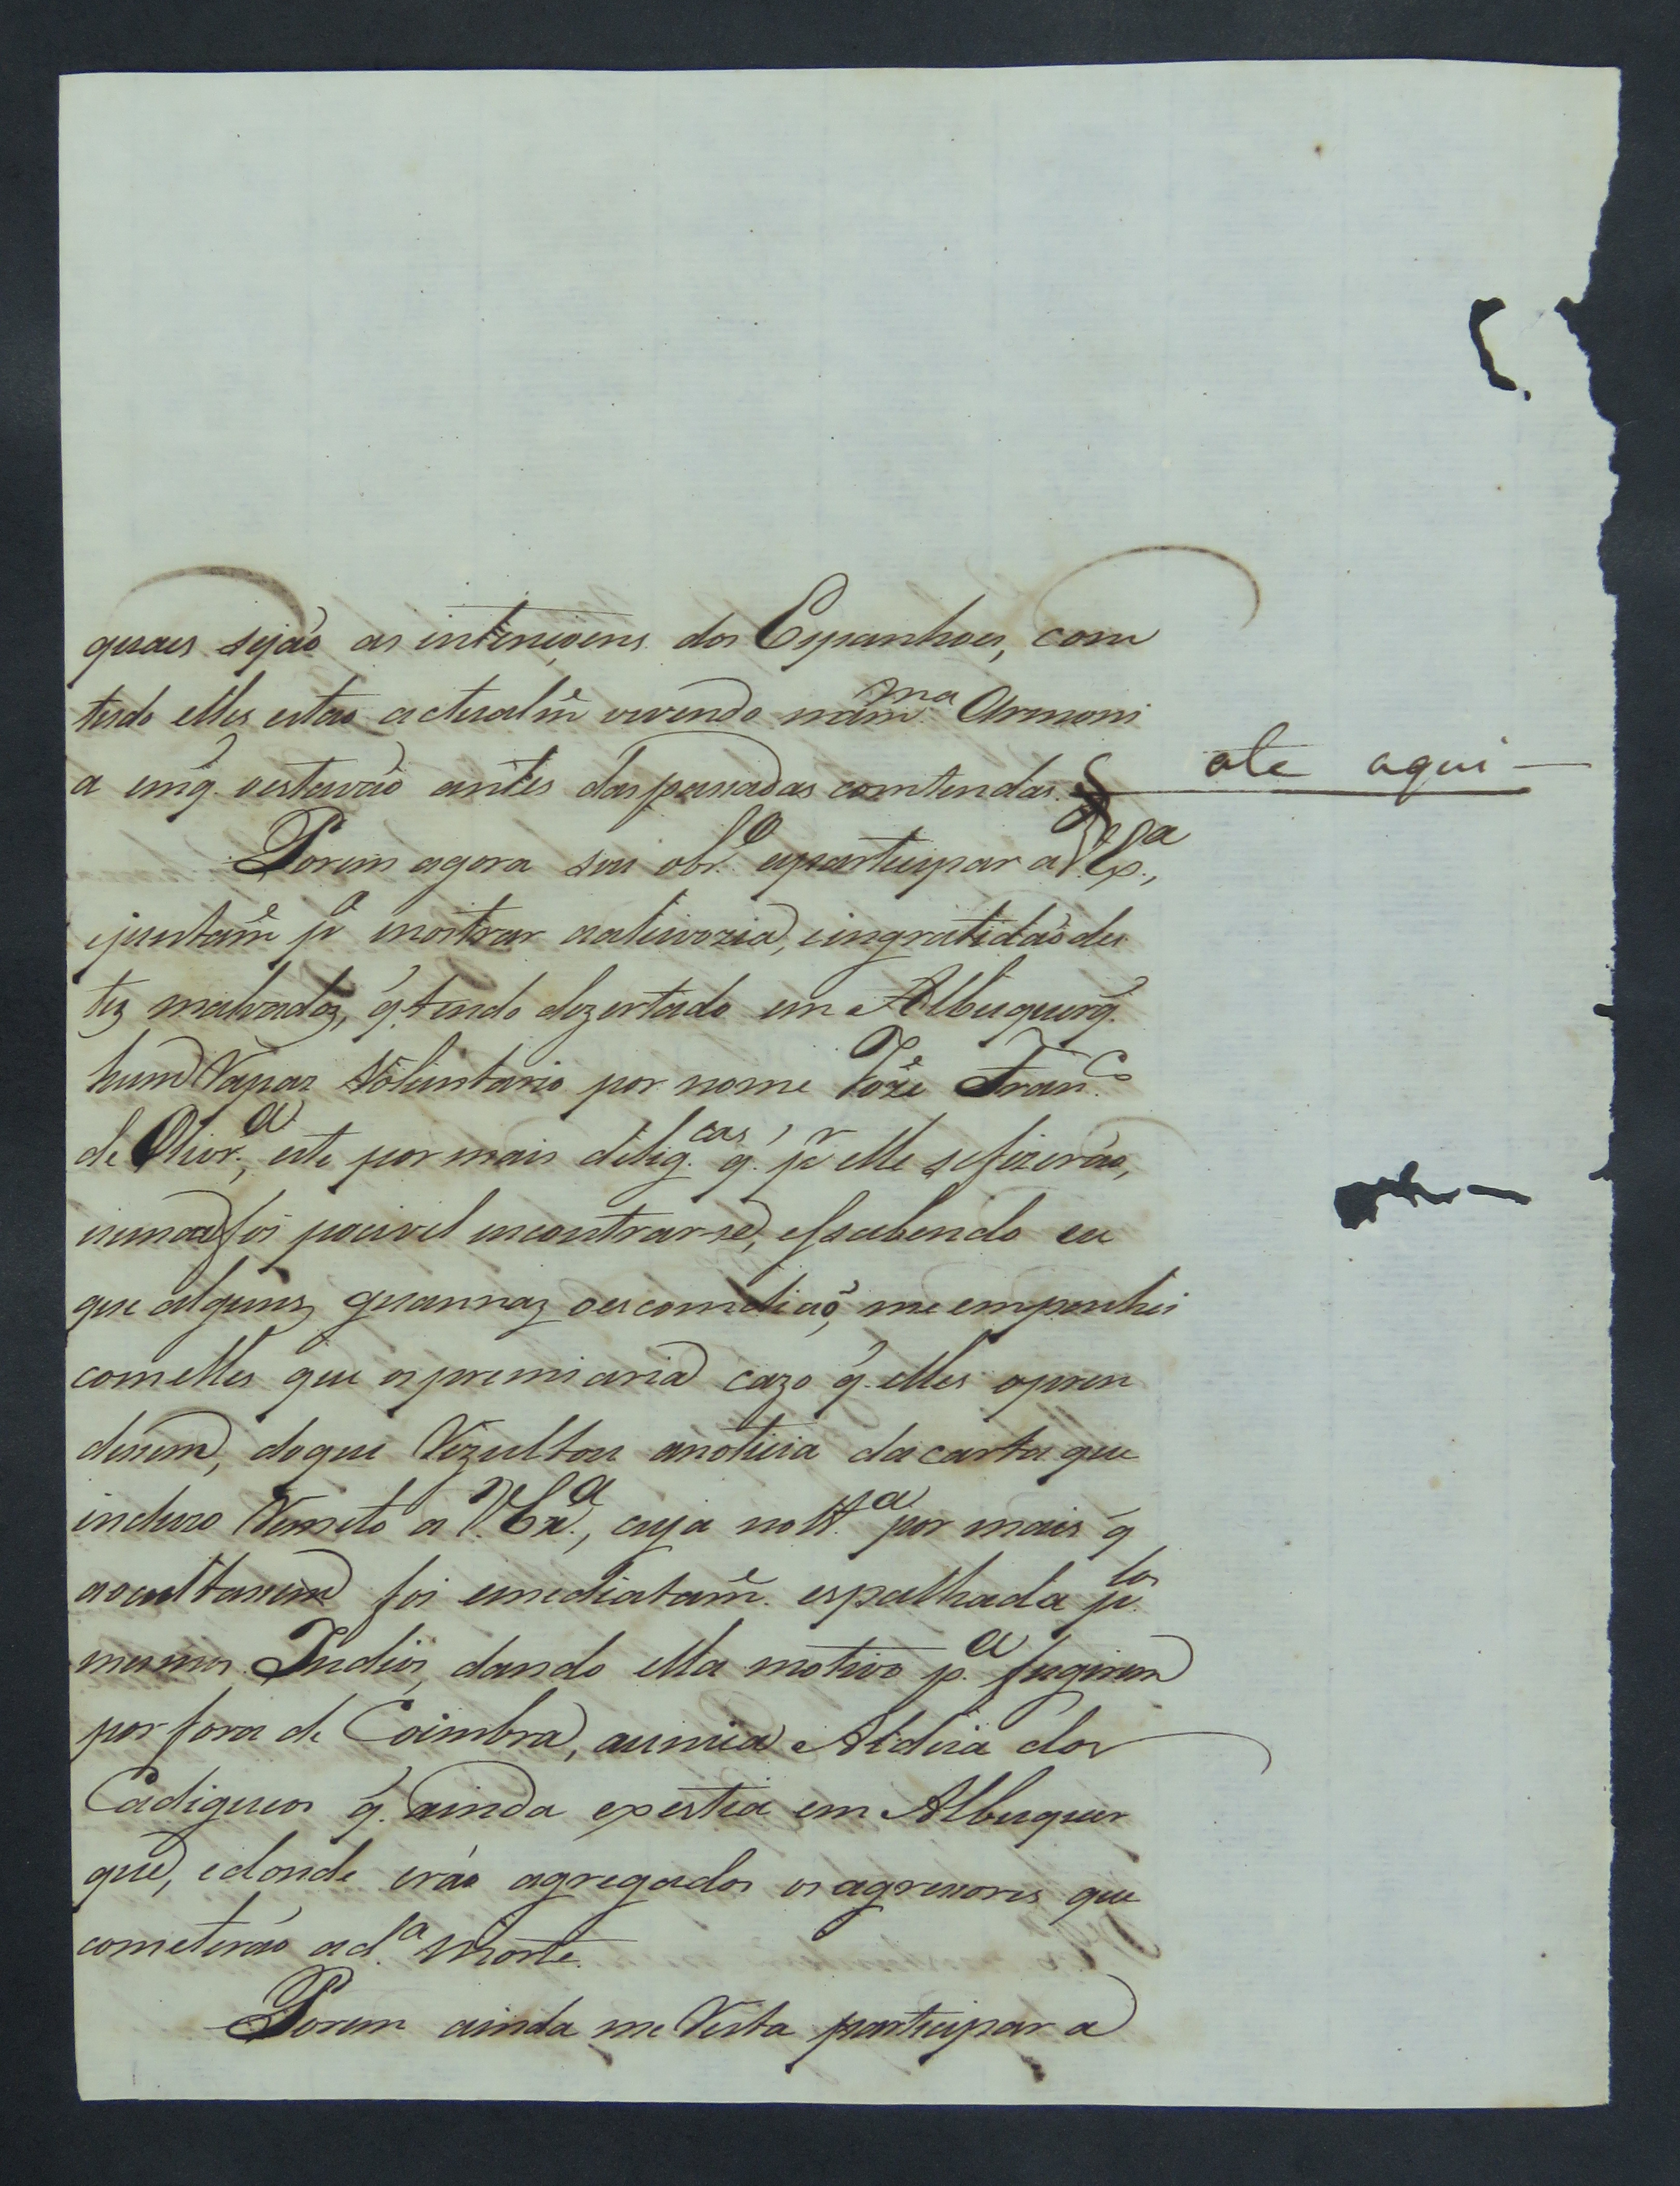 quaes sejaõ as intençoens dos Espanhoes, com
tudo elles estaõ actualm.ᵉ vivendo nam.ᵐᵃ Armoni
a emq̃. estavaõ antes das passadas comtendas. ate aqui —
Porem agora sou obr.º aparticipar a V.Ex.ª,
ejuntam.ᵉ p.ª mostrar aaleivozia, eingratidaõ des
tez malvadoz, q̃. tendo dezertado em Albuquerq̃.
hum Rapaz Voluntario por nome Joze Fran.ᶜᵒ
de Oliv.ª, este por mais delig.ᶜᵃˢ q̃. p.ʳ elle sefizeraõ,
nunca foi pocivel incontrar-se, esabendo eu
que alguns guannaz oescomdiaõ, me empenhei
comelles que ospremiaria cazo q̃. elles opren
desem, doque Rezultou anoticia dacarta que
incluzo Remeto a V.Exª., cuja notª. por mais q̃
aocultassem foi emediatam.ᵉ espalhada p.ˡᵒˢ
mesmos Indios, dando ella motivo p.ª fugirem
por fora de Coimbra, aunica Aldeia dos
Cadigueos q̃. ainda exestia em Albuquer
que, edonde eraõ agregados osagresores que
cometeraõ ad.ª Morte.
Porem ainda me Resta participar a